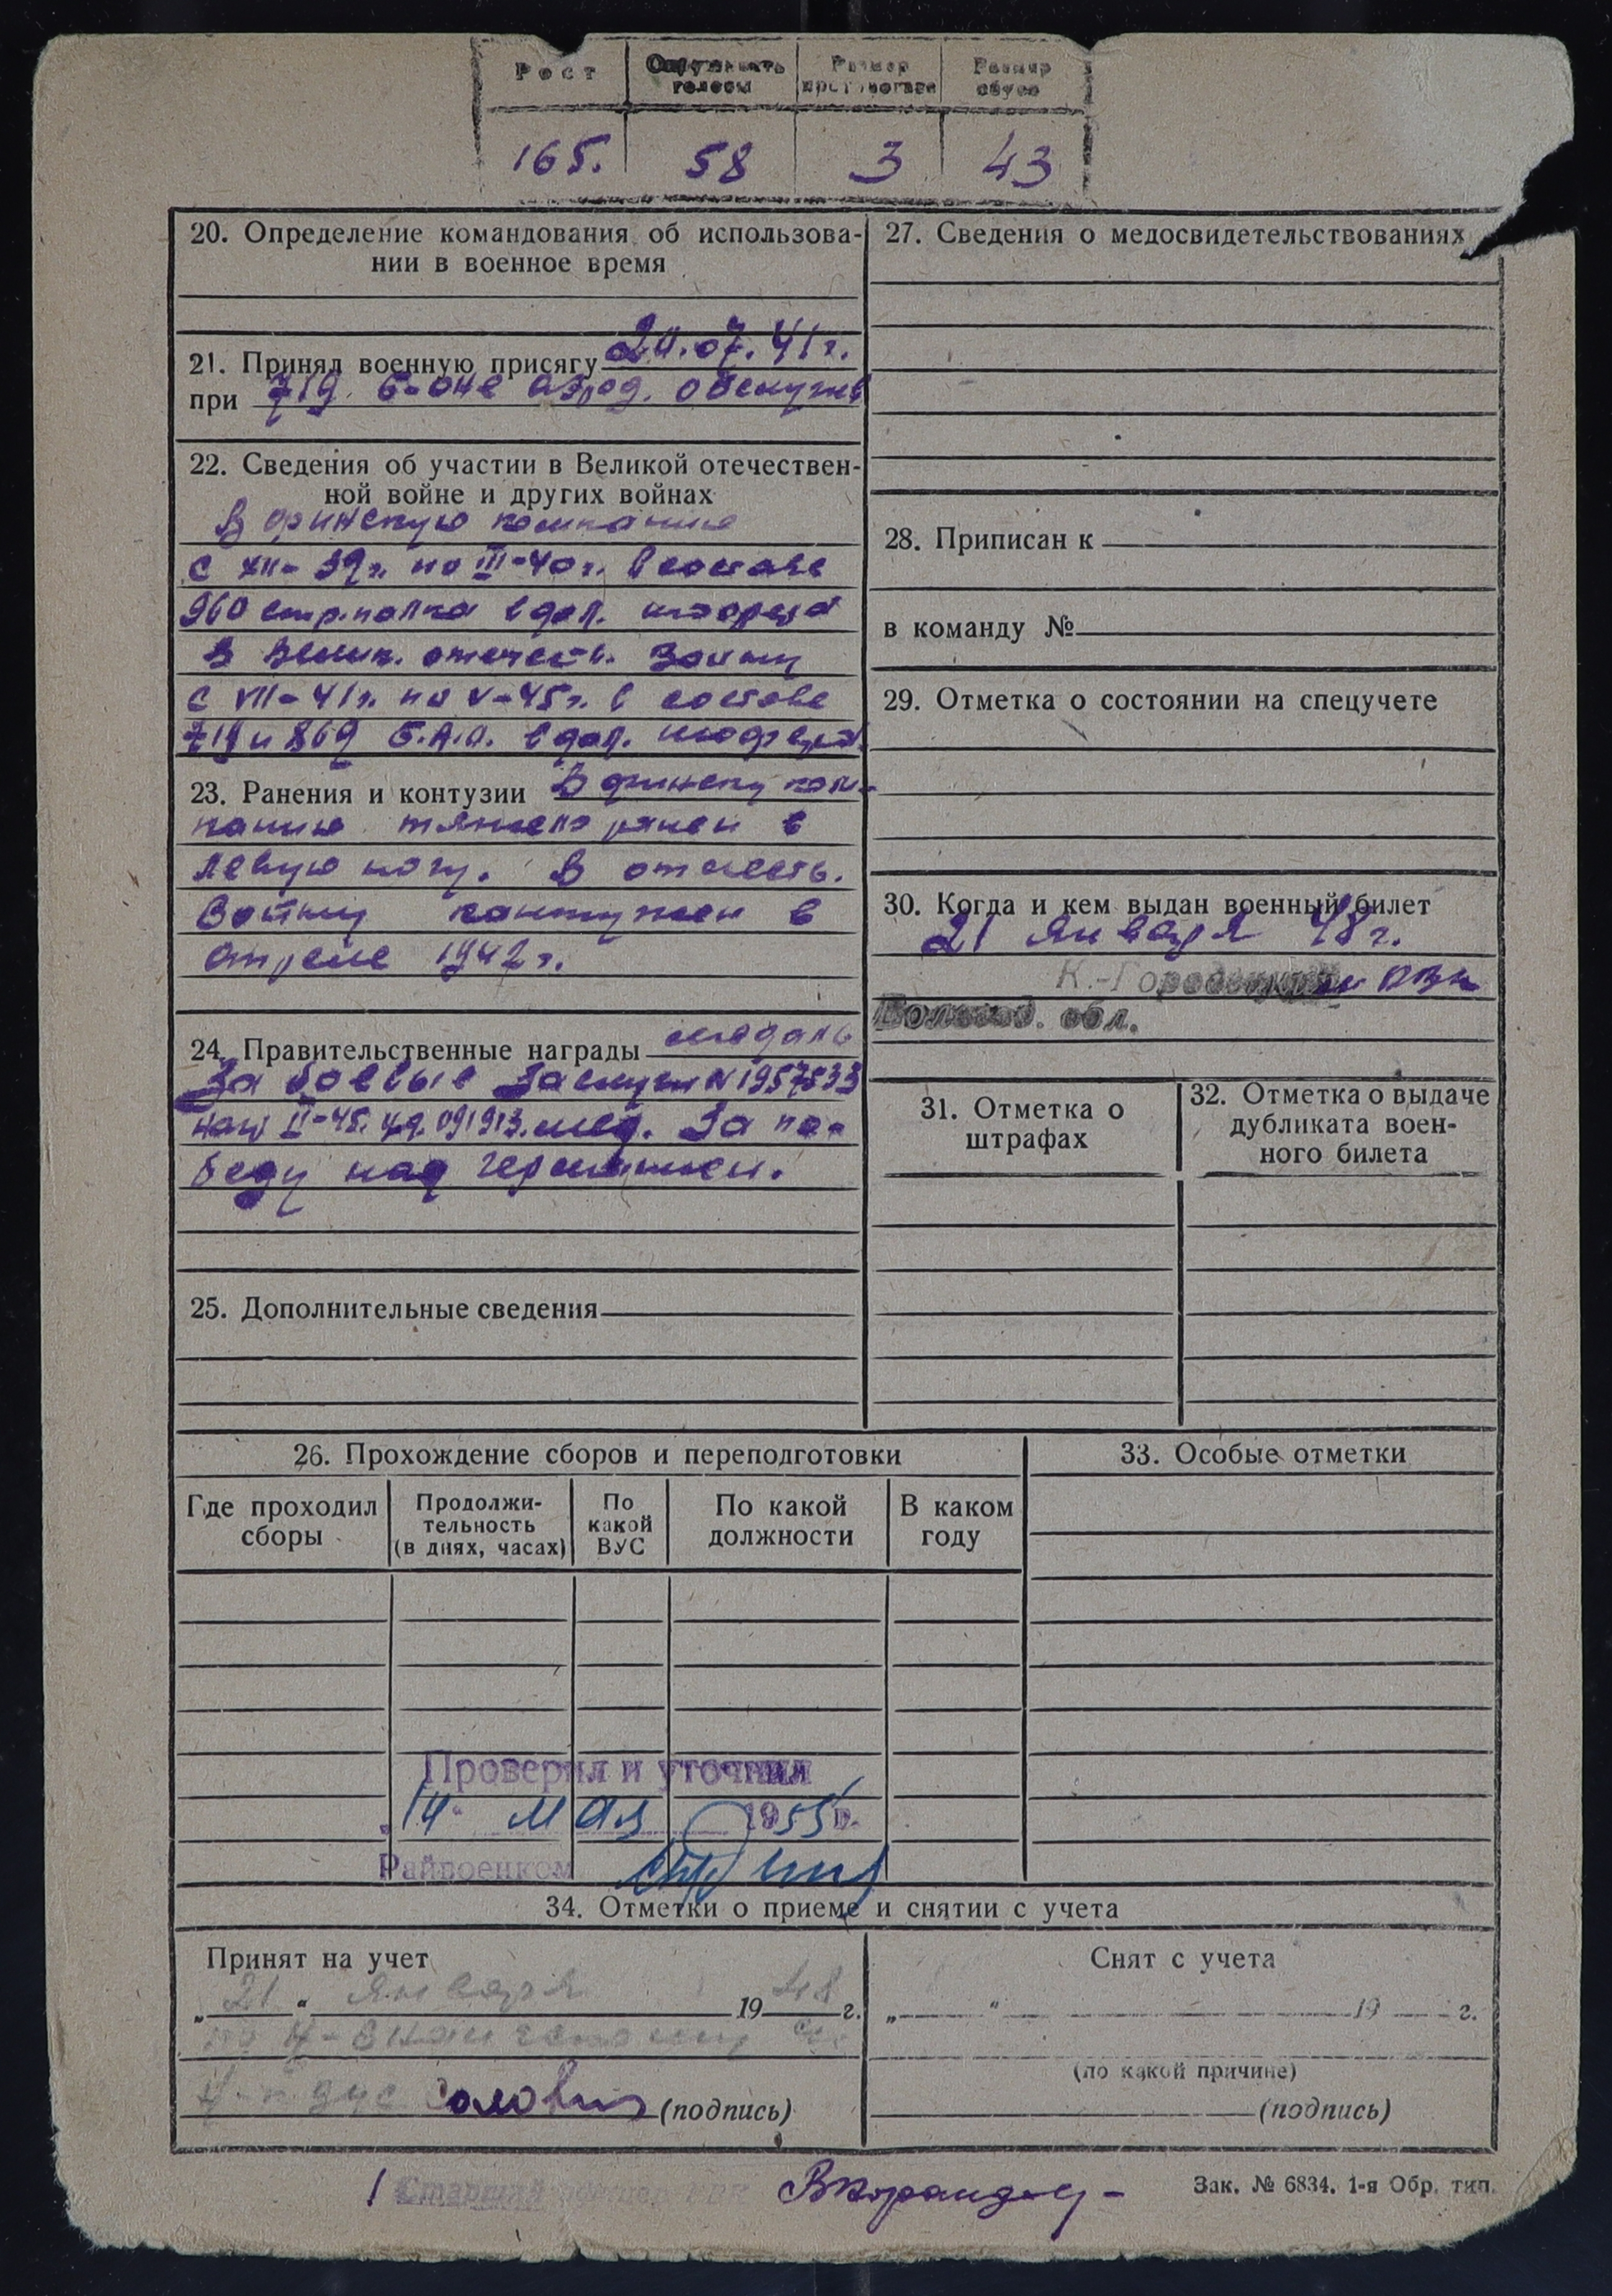 Рост Размер Размер
головы обуви
165. 58 3 43
20. Определение командования об использова-
нии в военное время
21. Принял военную присягу 20.07.41г.
при 719 б-оне аэрод. обслужив
22. Сведения об участии в Великой отечествен-
ной войне и других войнах
В финскую компанию
с XII-39г. по III-40г. в составе
960 стр. полка в дол. шофера
В Велик. отечеств. Войну
с VII-41г. по V-45г. в составе
719 и 869 Б.А.О. в дол. шофера
23. Ранения и контузии В финску ком-
панию тяжело ранен в
левую ногу. В отечеств.
Войну контужен в
апреле 1942г.
24. Правительственные награды медаль
За боевые Заслуги N1957533
II-45. уд. 091913. мед. За по-
беду над германией.
25. Дополнительные сведения
26. Прохождение сборов и переподготовки
Где проходил
сборы
Продолжи-
тельность
(в днях, часах)
По
какой
ВУС
По какой
должности
В каком
году
Проверил и уточнил
14 мая 1955 г.
Райвоенком
27. Сведения о медосвидетельствованиях
28. Приписан к
в команду №
29. Отметка о состоянии на спецучете
30. Когда и кем выдан военный билет
21 января 48г.
К.-Городецким РВК
Волог. обл.
31. Отметка о
штрафах
32. Отметка о выдаче
дубликата воен-
ного билета
33. Особые отметки
34. Отметки о приеме и снятии с учета
Принят на учет
„21“ января 1948 г.
(подпись)
Снят с учета
„ “ 19 г.
(по какой причине)
(подпись)
Старший
Зак. № 6834. 1-я Обр. тип.